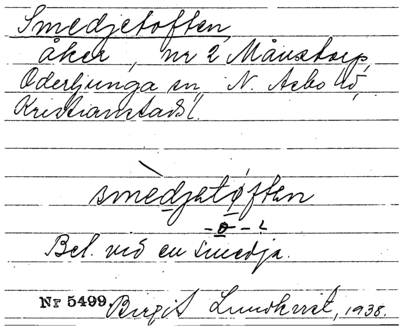 Smedjetoften,
åker, nr 2 Månstorp,
Oderljunga sn, N. Åsbo hd,
Kristianstads l.
smedjetoften
Bel. vid en smedja.
Nr 5499. Birgit Lundkvist, 1938.